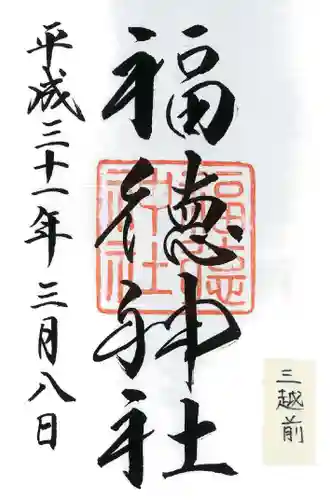 福徳神社
福徳神社
平成三十一年三月八日
三越前